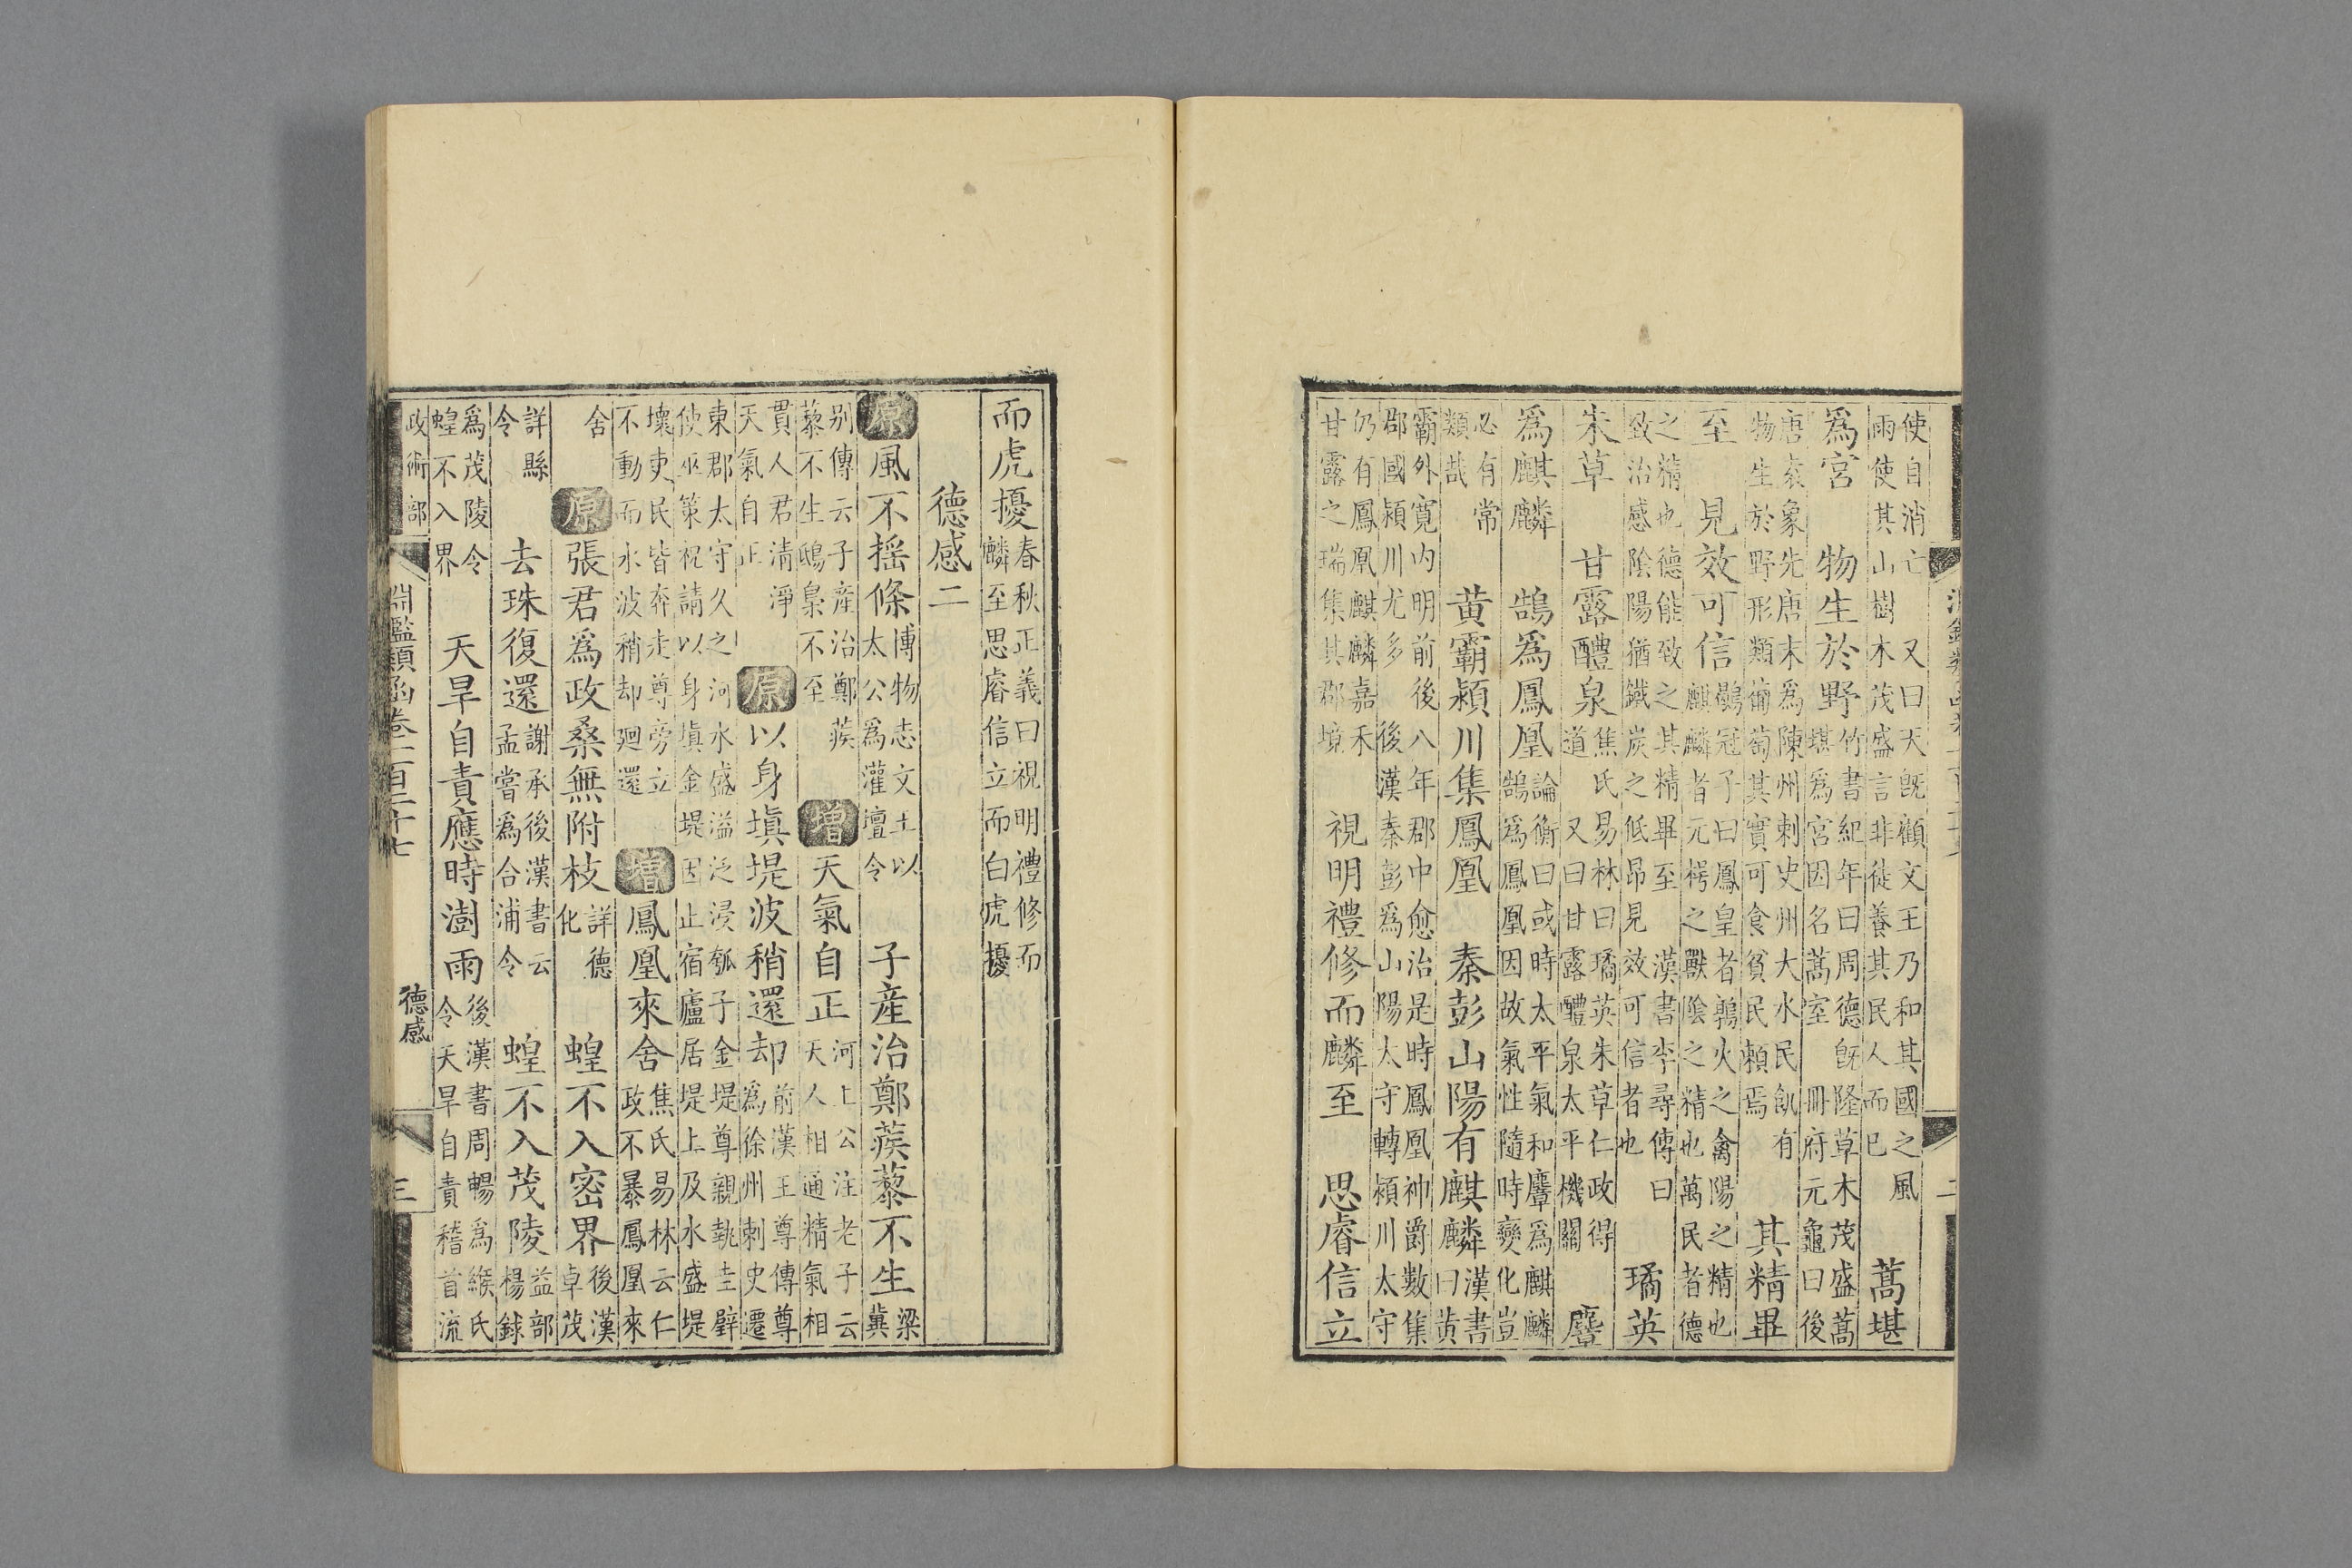 使自消亡 又曰天旣顧文王乃和其國之風
雨使其山樹木茂盛言非徒養其民人而已
蒿堪
爲宮 物生於野
竹書紀年曰周德旣隆草木茂盛蒿
堪爲宮因名蒿室 冊府元龜曰後
唐袁象先唐末爲陳州刺史州大水民飢有
物生於野形類葡萄其實可食貧民賴焉
其精畢
至 見效可信
鶡冠子曰鳳皇者鶉火之禽陽之精也
麒麟者元枵之獸陰之精也萬民者德
之精也德能致之其精畢至 漢書李尋傳曰
致治感陰陽猶鐵炭之低昂見效可信者也
璚英
朱草 甘露醴泉
焦氏易林曰璚英朱草仁政得
道 又曰甘露醴泉太平機關
麞
爲麒麟 鵠爲鳳凰
論衡曰或時太平氣和麞爲麒麟
鵠爲鳳凰因故氣性隨時變化豈
必有常
類哉
黄霸潁川集鳳凰 秦彭山陽有麒麟
漢書
曰黄
霸外寛内明前後八年郡中愈治是時鳳凰神爵數集
郡國潁川尤多 後漢秦彭爲山陽太守轉潁川太守
仍有鳳凰麒麟嘉禾
甘露之瑞集其郡境
視明禮修而麟至 思睿信立
而虎擾
春秋正義曰視明禮修而
麟至思睿信立而白虎擾
德感二
原風不摇條
博物志文王以
太公爲灌壇令
子産治鄭蒺藜不生
梁
冀
别傳云子産治鄭蒺
藜不生鴟梟不至
增天氣自正
河上公注老子云
天人相通精氣相
貫人君清淨
天氣自正
原以身塡堤波稍還却
前漢王尊傳尊
爲徐州刺史遷
東郡太守久之河水盛溢泛浸瓠子金堤尊親執圭璧
使巫策祝請以身塡金堤因止宿廬居堤上及水盛堤
壞吏民皆奔走尊旁立
不動而水波稍却廻還
增鳳凰來舍
焦氏易林云仁
政不暴鳳凰來
舍
原張君爲政桑無附枝
詳德
化
蝗不入密界
後漢
卓茂
詳縣
令
去珠復還
謝承後漢書云
孟嘗爲合浦令
蝗不入茂陵
益部
楊録
爲茂陵令
蝗不入界
天旱自責應時澍雨
後漢書周暢爲緱氏
令天旱自責稽首流
政術部
淵鑑類函卷一百二十七
德感
三